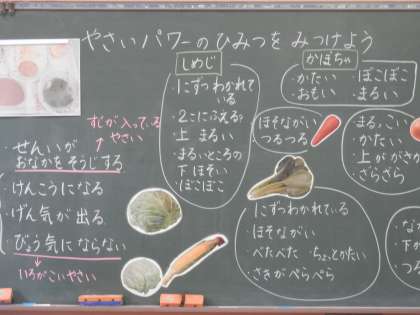 やさいパワーのひみつをみつけよう
すじが入っている
やさい
・せんいが
おなかをそうじする
・けんこうになる
・げん気が出る
・びょう気にならない
いろがこいやさい
しめじ
・1にずつわかれて
いる
・2こにふえる?
・上 まるい
・まるいところの
下 ほそい
・ぼこぼこ
かぼちゃ
・かたい
・おもい
・ぼこぼこ
・まるい
・ほそながい
・つるつる
・まる、こい
・かたい
・ざらざら
・1にずつわかれている
・ほそながい
・べたべた ・ちょっとかたい
・さきがぺらぺら